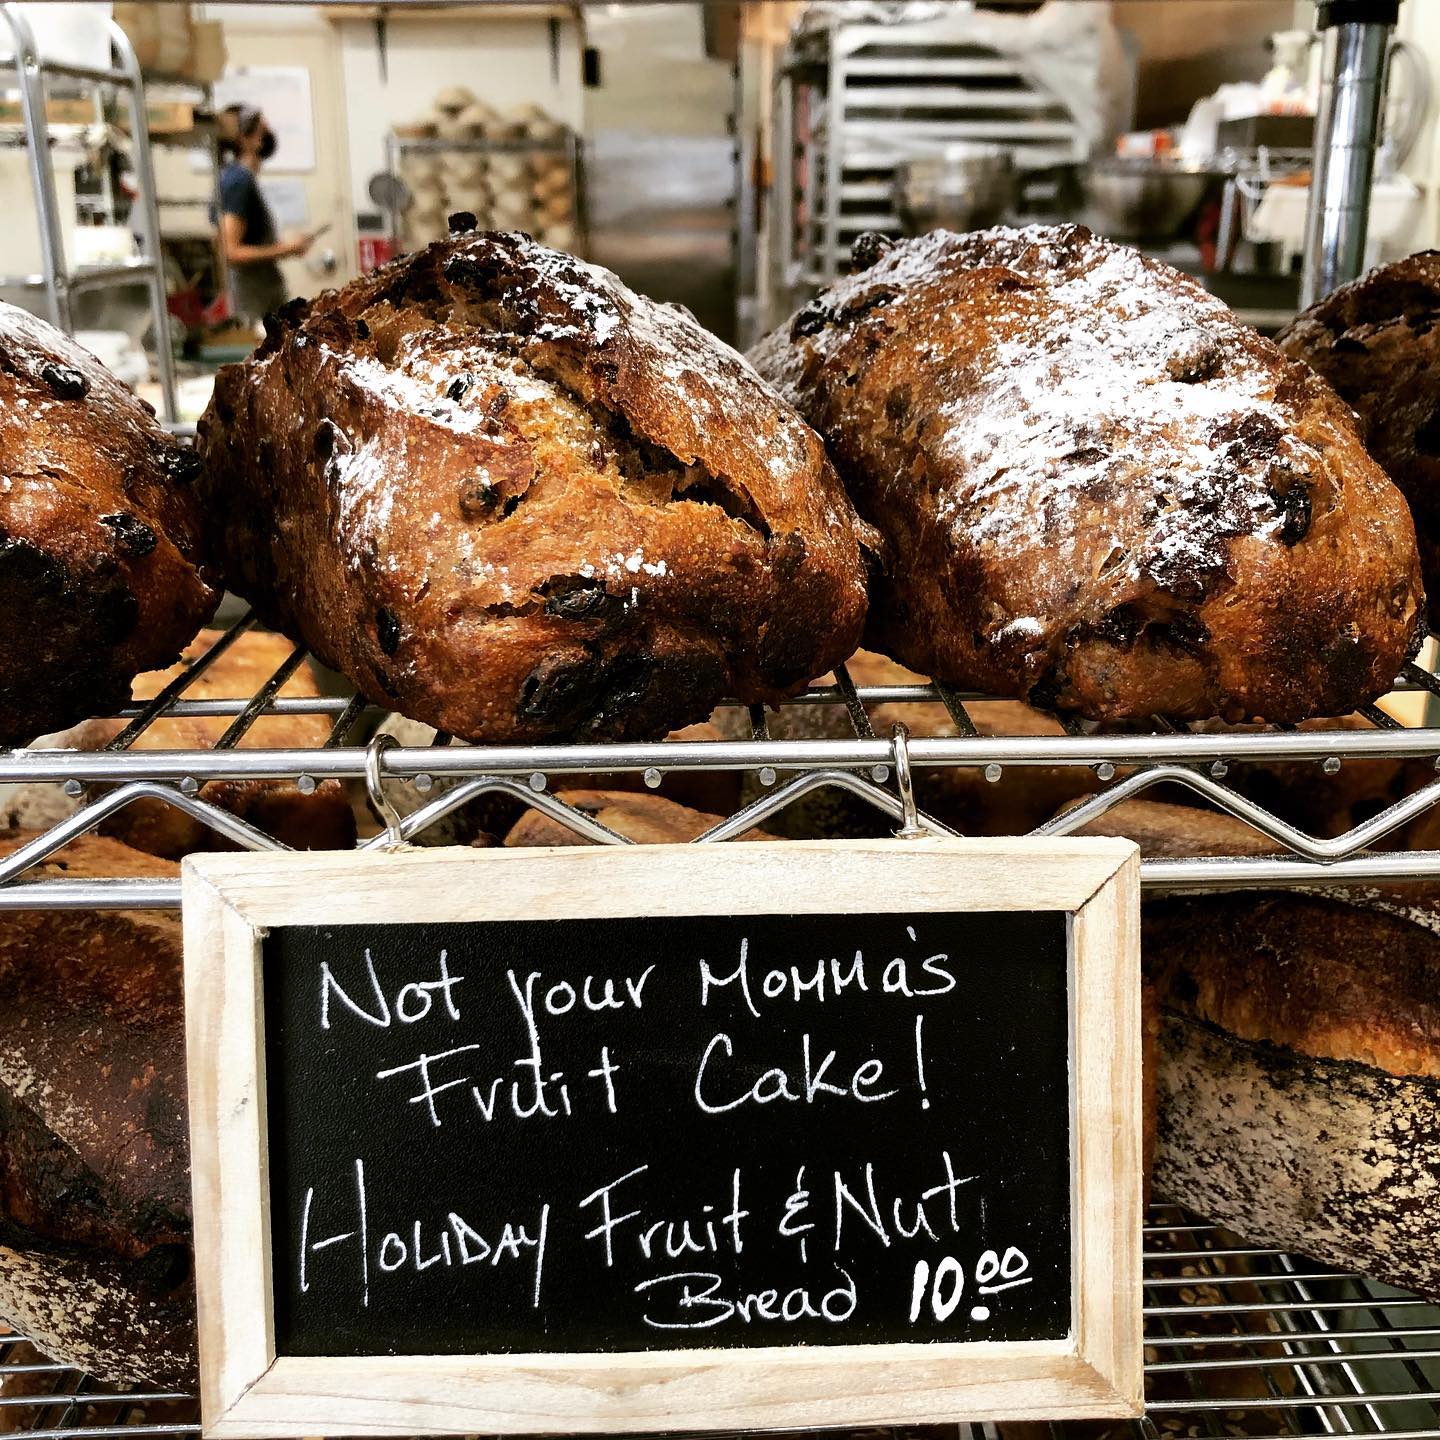 Not your Momma's
Fruit Cake!
Holiday Fruit & Nut
Bread 10.00